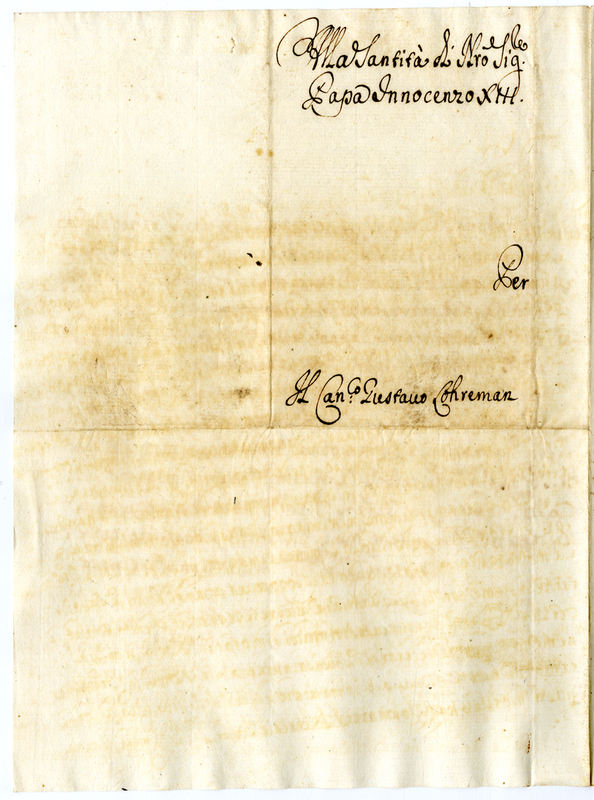 Alla Santità di Nro Sig.re
Papa Innocenzo XIII.
Per
Il Can.co Gustavo Cohreman